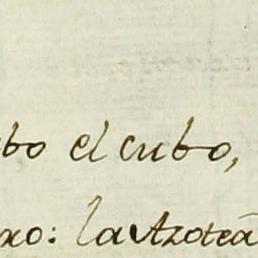 bo el cubo,
xo: la Azotea